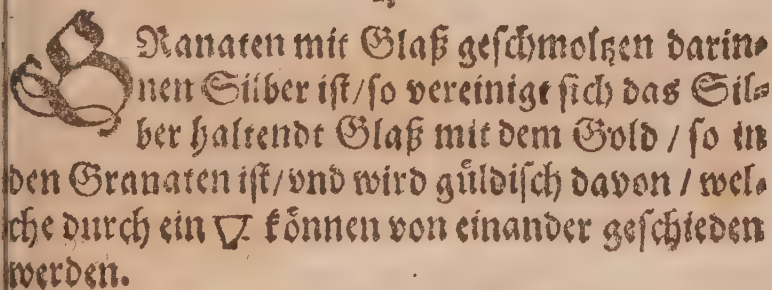 GRanaten mit Glaß geschmoltzen darin⸗
nen Silber ist/so vereinigt sich das Sil⸗
ber haltendt Glaß mit dem Gold / so in
den Granaten ist/vnd wird güldisch davon / wel⸗
che durch ein 🜄 können von einander geschieden
werden.